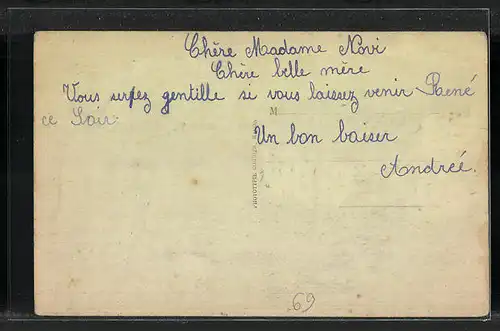 Chère Madame Novi
Chère belle mère
Vous serez gentille si vous laissez venir René
ce Soir.
M
Un bon baiser
Andrée.
69